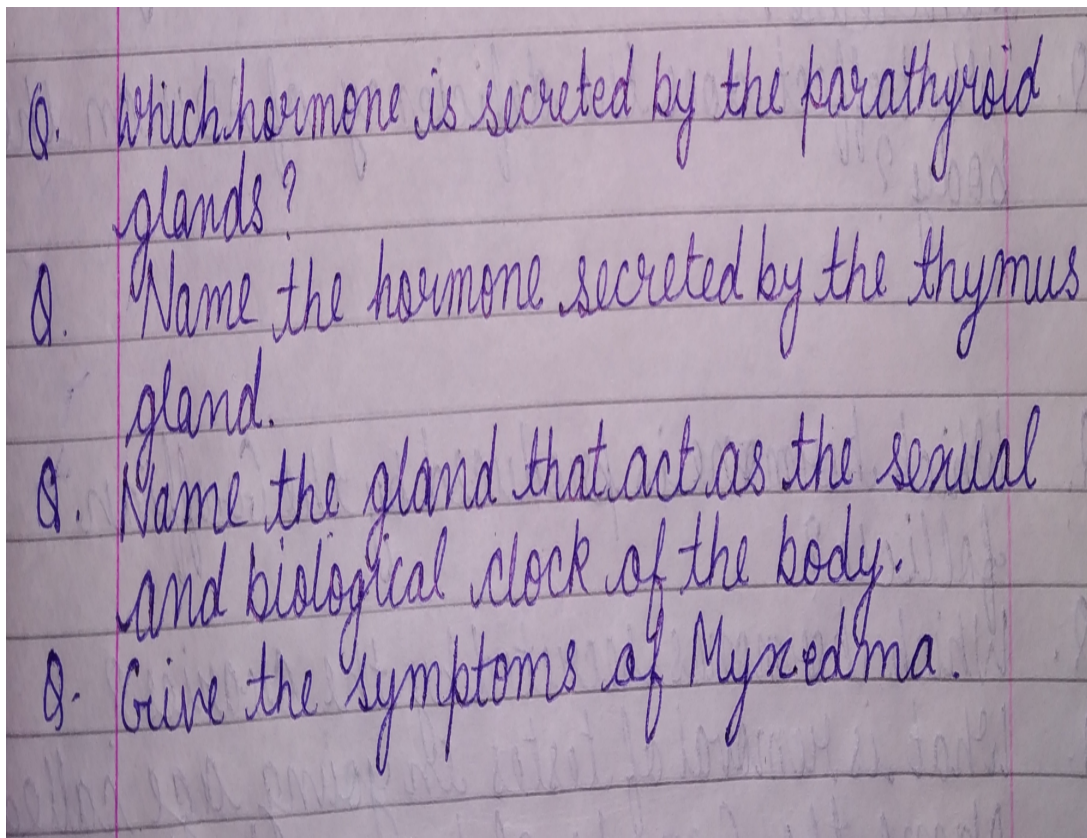 Q. Which hormone is secreted by the parathyroid
glands?
Q. Name the hormone secreted by the thymus
gland.
Q. Name the gland that act as the sexual
and biological clock of the body.
Q. Give the symptoms of Myxedma.